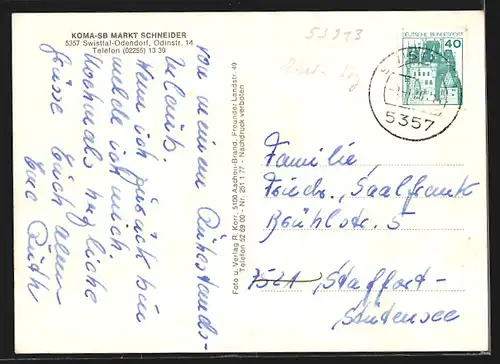 KOMA-SB MARKT SCHNEIDER
5357 Swisttal-Odendorf, Odinstr. 14
Telefon (02255) 13 39
von meinem Ruhestands-
Urlaub.
Wenn ich zurück bin
melde ich mich.
Nochmals herzliche
Grüsse Euch allen
Eure Ruth
Foto u. Verlag R. Korr, 5100 Aachen-Brand, Freunder Landstr. 49
Telefon 52 69 00 - Nr. 251 1 77 - Nachdruck verboten
DEUTSCHE BUNDESPOST
40
5357
Familie
Friedr. Saalfrank
Brühlstr. 5
7521 Staffort-
Stutensee